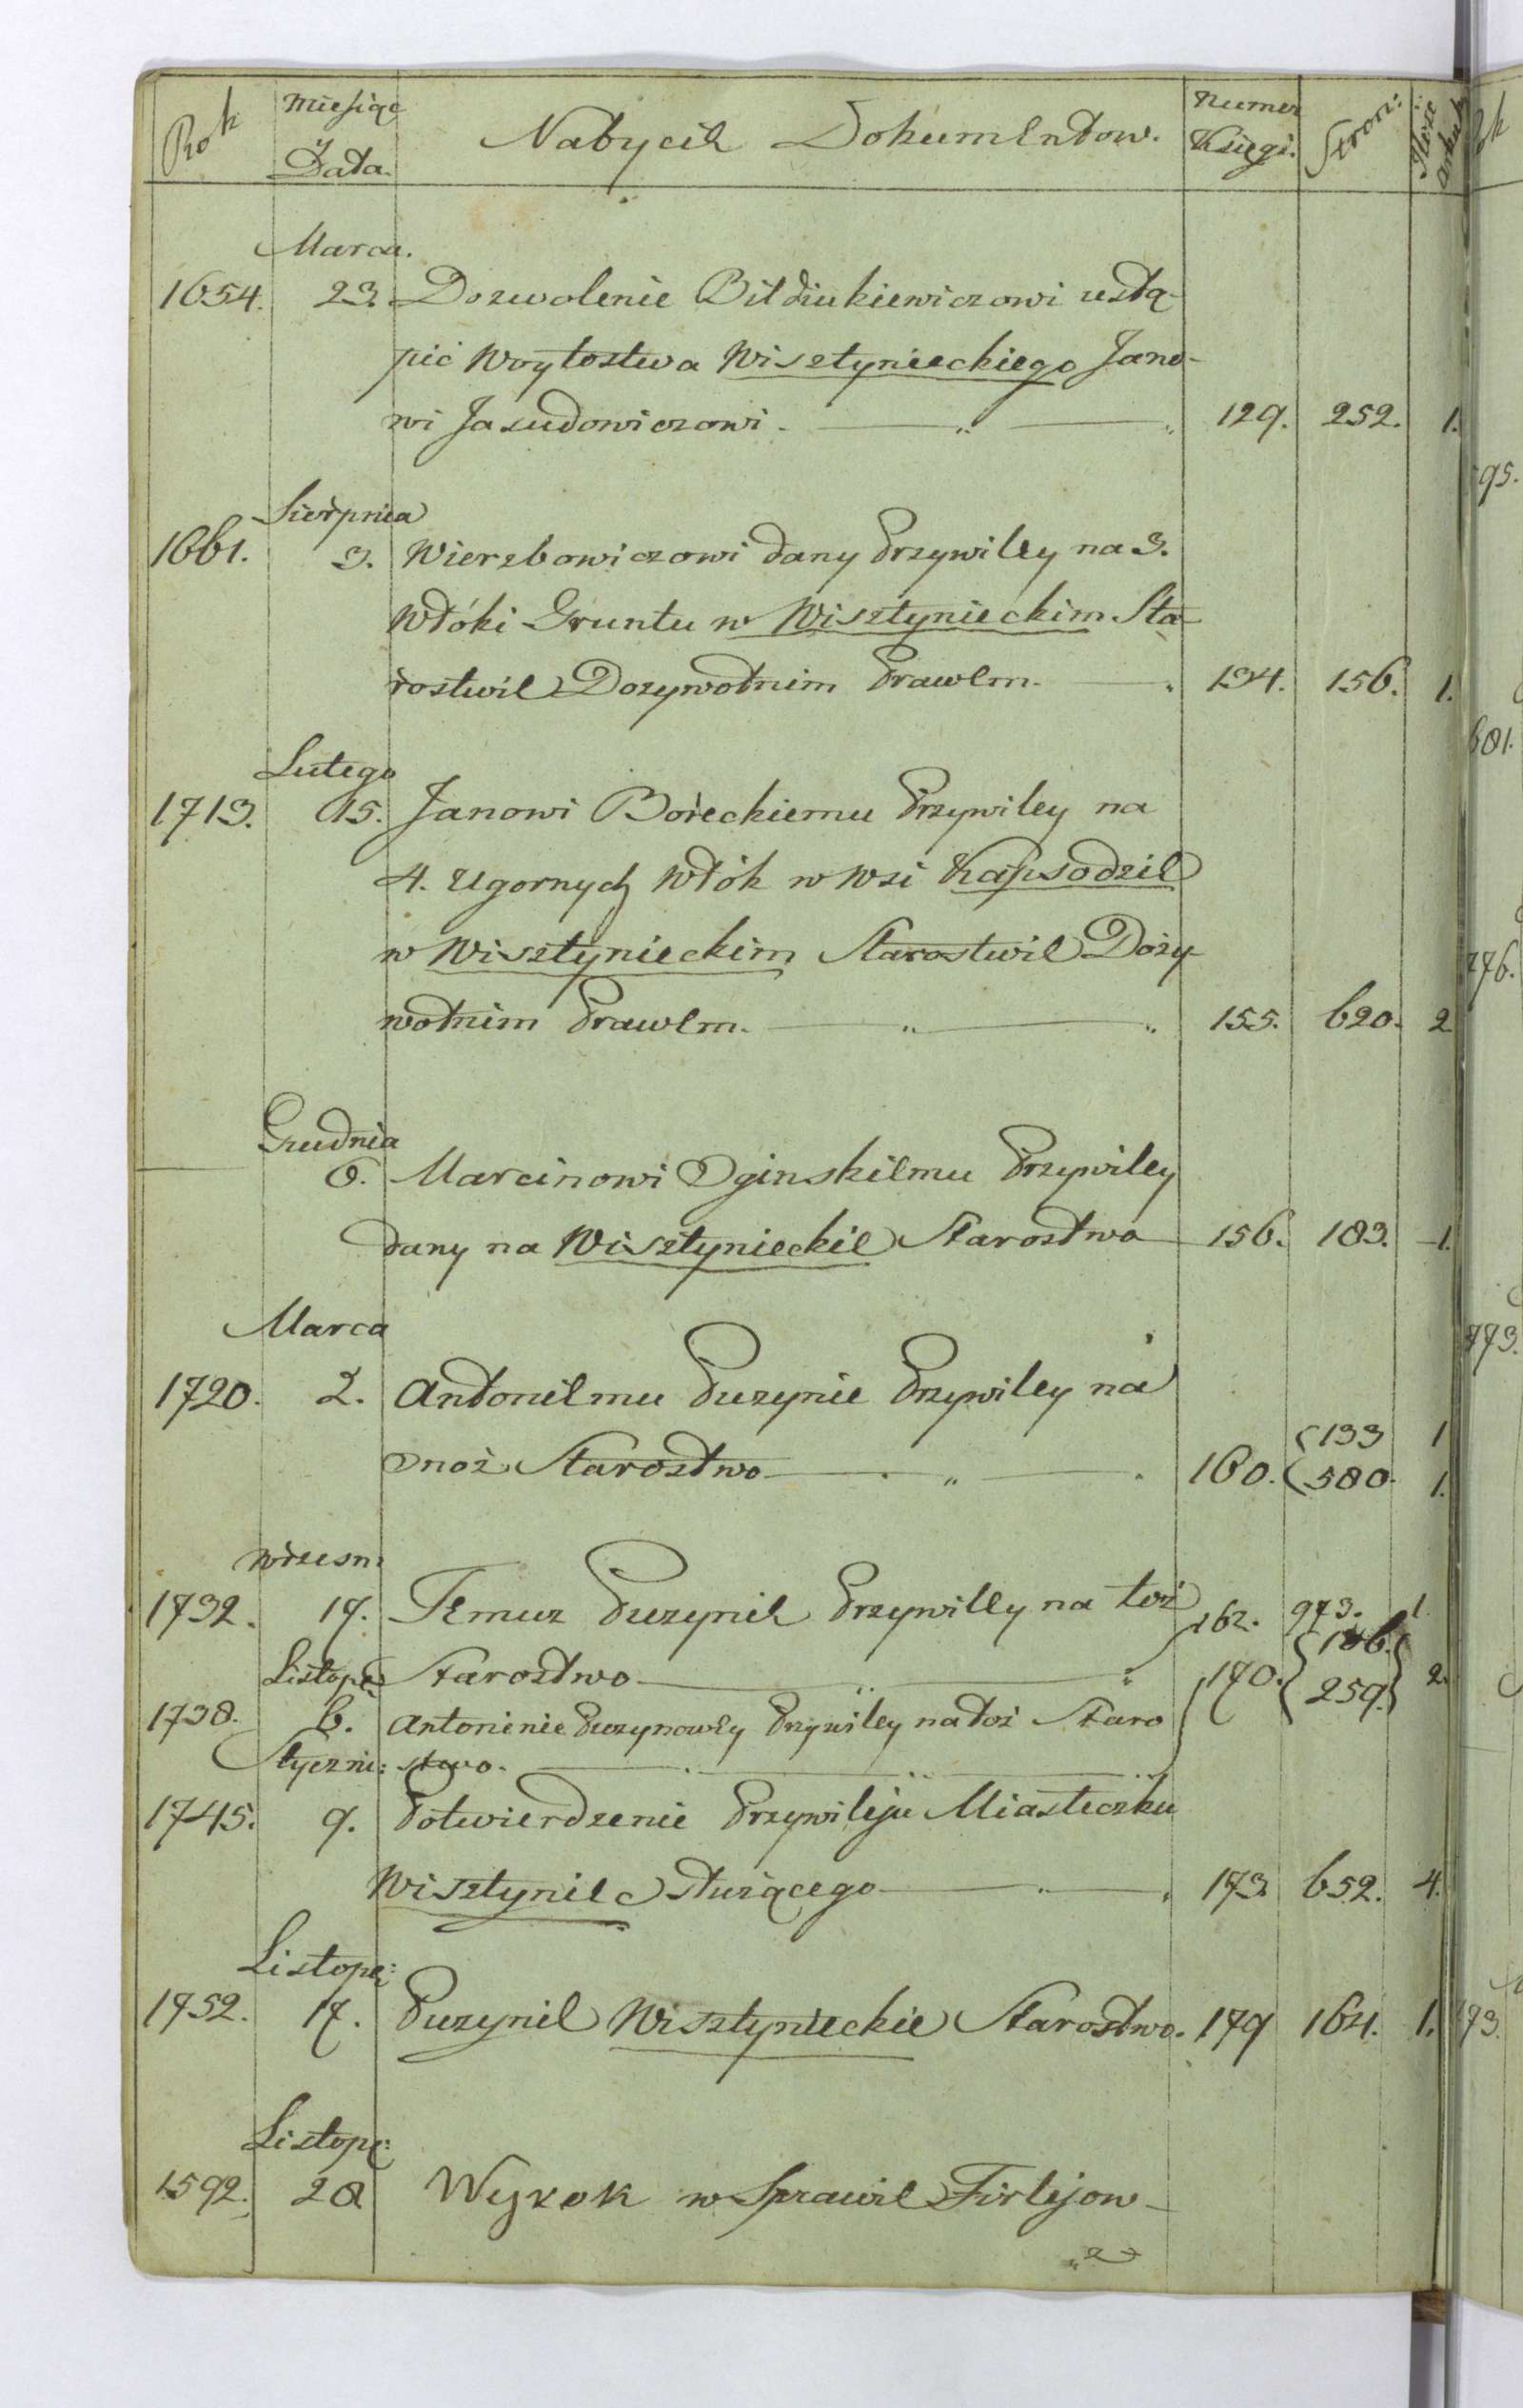 Rok Miesiąc y Data. Nabycie Dokumentow. Numer Księgi. Stron:
Marca.
1654. 23. Dozwolenie Bildiukiewiczowi ustą-
pić Woytostwa Wisztynieckiego Jano-
wi Jasudowiczowi. 129. 252. 1.
Sierpnia
1661. 3. Wierzbowiczowi dany Przywiley na 3.
Włóki Gruntu w Wisztynieckim Sta-
rostwie Dozywotnim Prawem. 134. 156. 1.
Lutego
1713. 15. Janowi Boreckiemu Przywiley na
4. Ugornych Włók w Wsi Kapsodzie
w Wisztynieckim Starostwie Doży-
wotnim Prawem. 155. 620. 2
Grudnia
6. Marcinowi Oginskiemu Przywiley
dany na Wisztynieckie Starostwo 156. 183. 1.
Marca
1720. 2. Antoniemu Puzynie Przywiley na
Onoż Starostwo 160. 133 1
580. 1.
Wrzesn:
1732. 17. Temuz Puzynie Przywiley na toż 162. 973. 1.
Listopa: Starostwo 170. 186. 259. 2.
1738. 6. Antoninie Puzynowey Przywiley na toż Staro
Styczni: stwo.
1745. 9. Potwierdzenie Przywileju Miasteczku
Wisztyniec służącego 173. 652. 4.
Listopa:
1752. 17. Puzynie Wisztynieckie Starostwo. 179 164. 1.
Listopa:
1592. 28 Wyrok w Sprawie Firlejow-